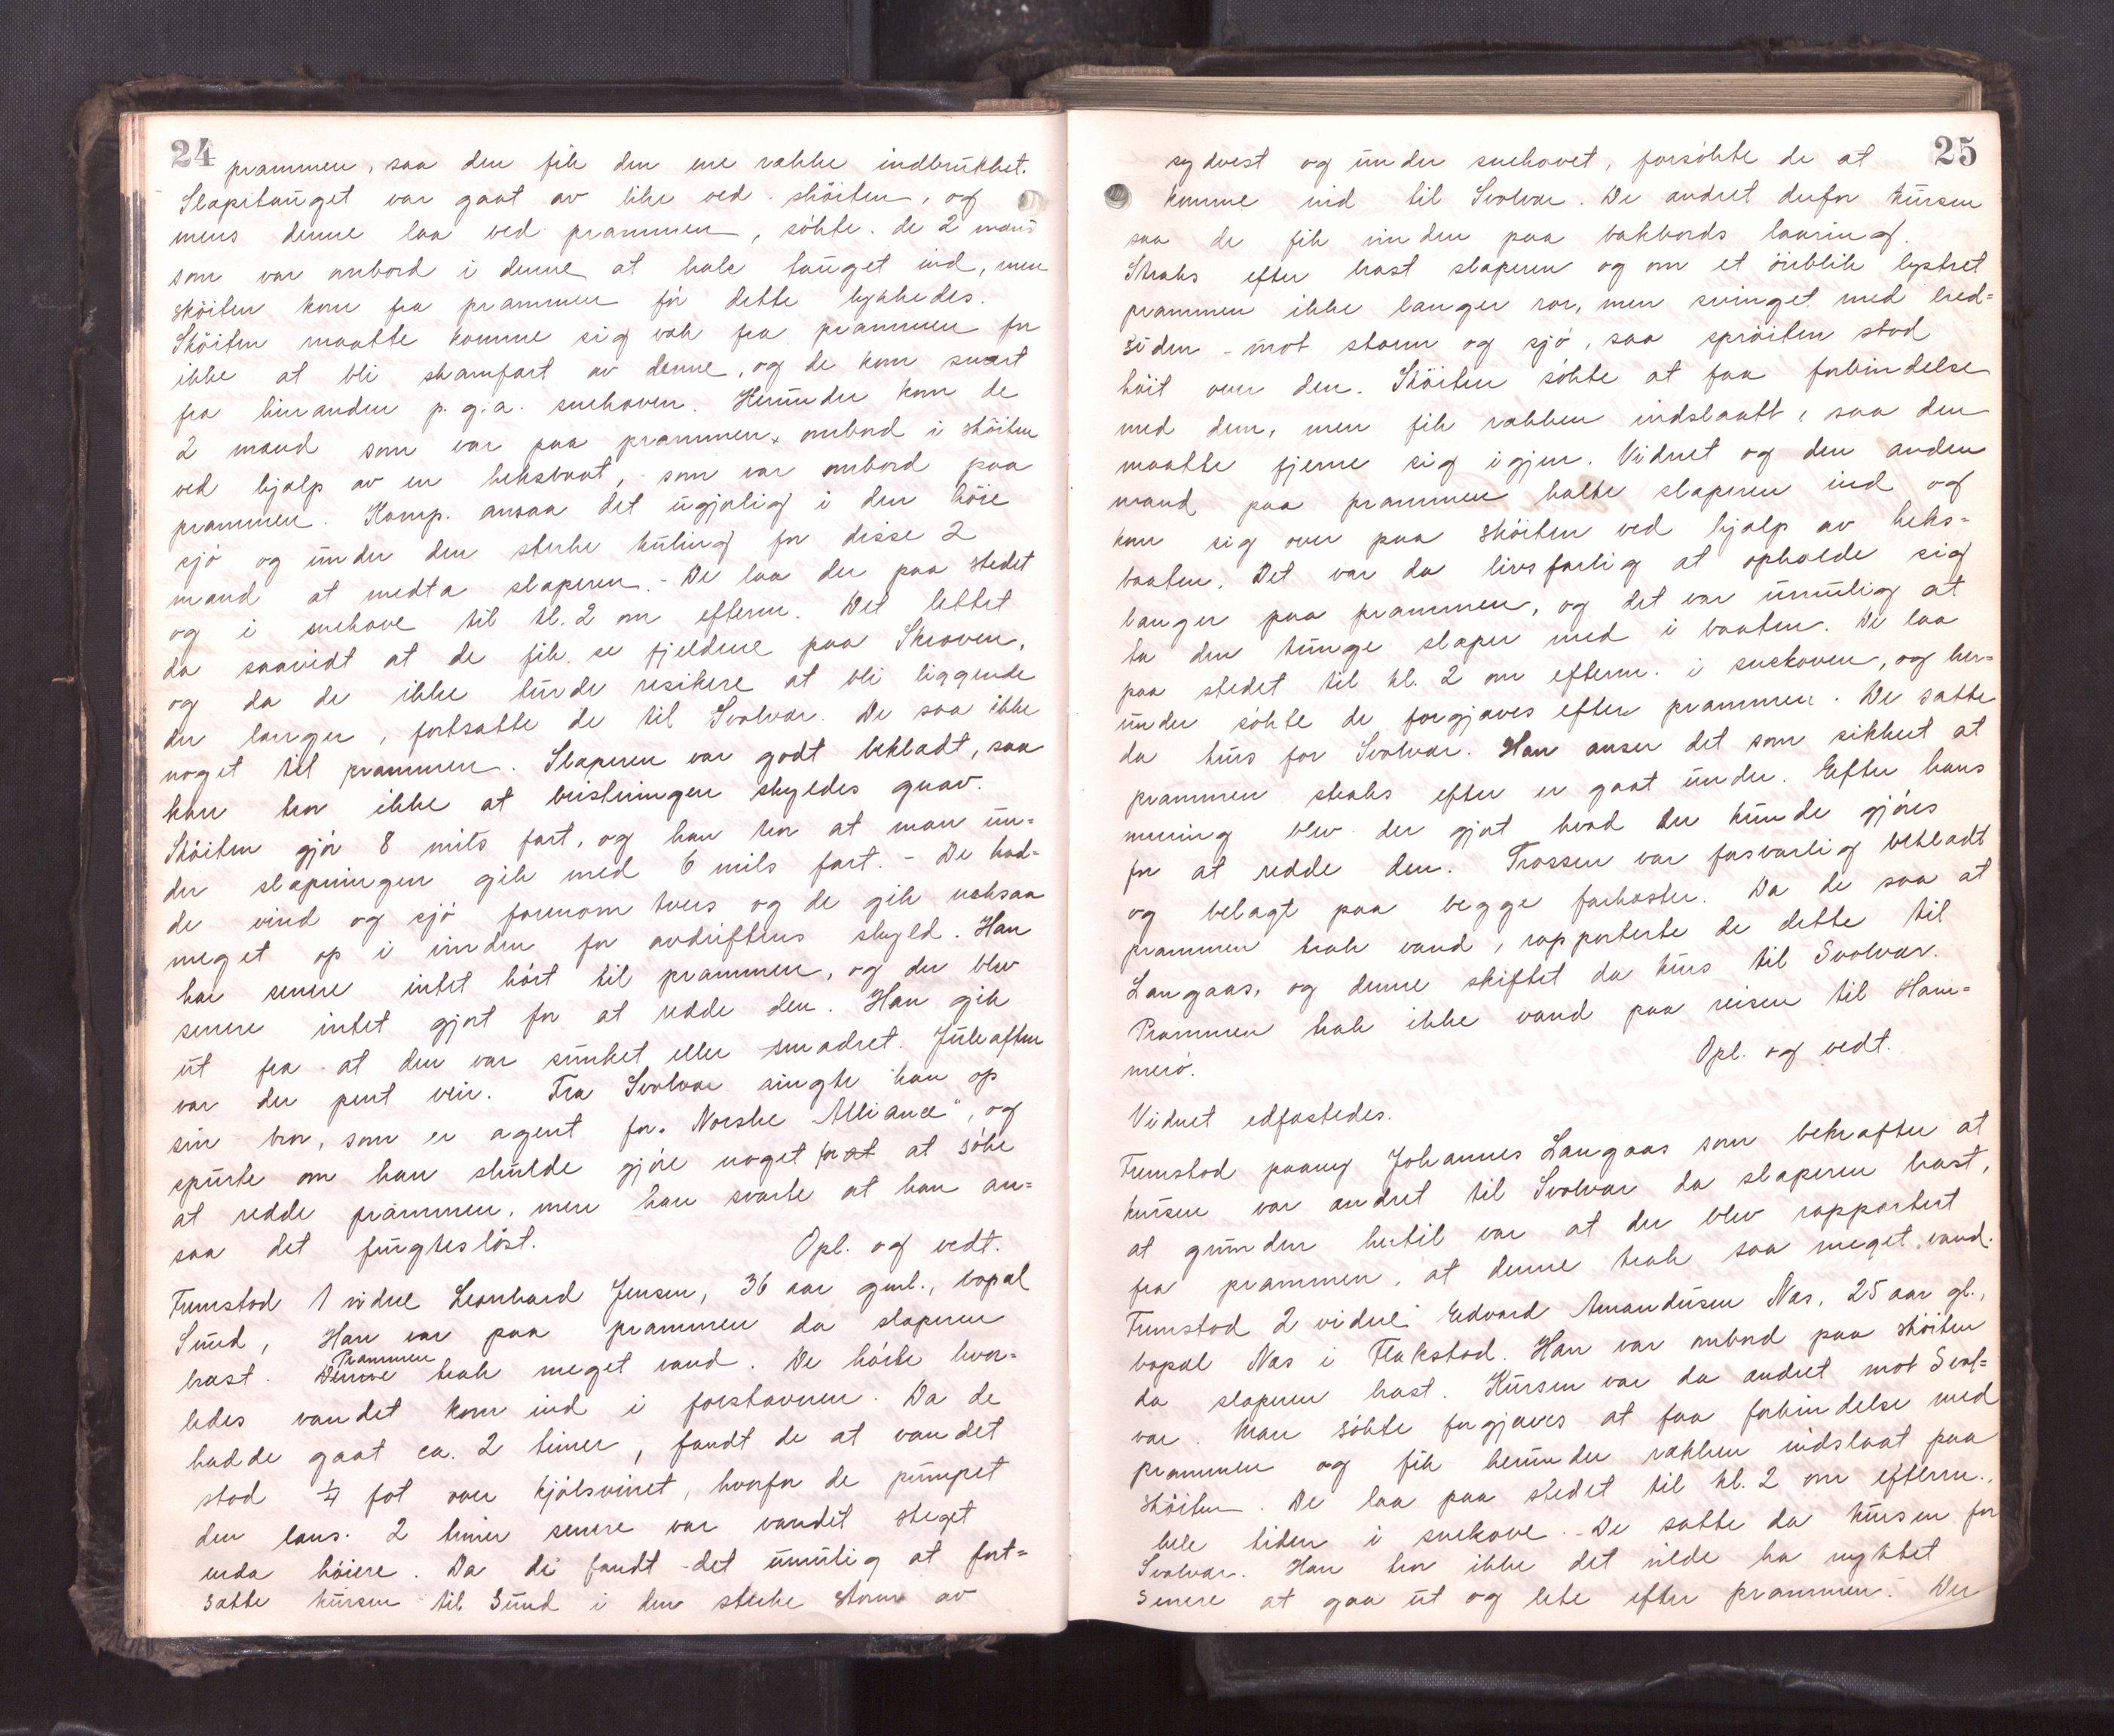 24
prammen, saa den fik den ene række indbrukket.
Slæpetauget var gaat av like ved skøiten, og
mens denne laa ved prammen, søkte de 2 mand
som var ombord i denne at hale tauget ind, men
skøiten kom fra prammen før dette lykkedes.
Skøiten maatte komme sig væk fra prammen for
ikke at bli skamfart av denne, og de kom snart
fra hinanden p.g.a. snekoven. Herunder kom de
2 mand som var paa prammen, ombord i skøiten
ved hjælp av en heksbaat, som var ombord paa
prammen. Komp. ansaa det ugjørlig i den høie
sjø og under den sterke kuling for disse 2
mand at medta slæperen. - De laa der paa stedet
og i snekove til kl. 2 om efterm. Det lettet
da saavidt at de fik se fjeldene paa Skroven,
og da de ikke turde resikere at bli liggende
der længer, fortsatte de til Svolvær. De saa ikke
noget til prammen. Slæperen var godt bekladt, saa
han tror ikke at bristningen skyldes gnav.
Skøiten gjør 8 mils fart, og han tror at man un=
der slæpningen gik med 6 mils fart. - De had=
de vind og sjø forenom tvers og de gik noksaa
meget op i vinden for avdriftens skyld. Han
har senere intet hørt til prammen, og der blev
senere intet gjort for at redde den. Han gik
ut fra at den var sunket eller smadret. Juleaften
var der pent veir. Fra Svolvær ringte han op
sin bror, som er agent for "Norske Alliance", og
spurte om han skulde gjøre noget for at at søke
at redde prammen, men han svarte at han an=
saa det frugtesløst. Opl. og vedt.
Fremstod 1 vidne Leonhard Jensen, 36 aar gml., bopæl
Sund, Han var paa prammen da slæperen
Prammen
brast. Denne trak meget vand. De hørte hvor=
ledes vandet kom ind i forstavnen. Da de
hadde gaat ca. 2 timer, fandt de at vandet
stod 1/4 fot over kjølsvinet, hvorfor de pumpet
den læns. 2 timer senere var vandet steget
enda høiere. Da de fandt det umulig at fort=
sætte kursen til Sund i den sterke storm av
25
sydvest og under snekovet, forsøkte de at
komme ind til Svolvær. De ændret derfor kursen
saa de fik vinden paa bakbords laaring.
Straks efter brast slæperen og om et øieblik lystret
prammen ikke længer ror, men svinget med bred=
siden mot storm og sjø, saa sprøiten stod
høit over den. Skøiten søkte at faa forbindelse
med dem, men fik rækken indslaatt, saa den
maatte fjerne sig igjen. Vidnet og den anden
mand paa prammen halte slæperen ind og
kom sig over paa skøiten ved hjælp av heks=
baaten. Det var da livsfarlig at opholde sig
længer paa prammen, og det var umulig at
ta den tunge slæper med i baaten. De laa
paa stedet til kl. 2 om efterm. i snekoven, og her=
under søkte de forgjæves efter prammen. De satte
da kurs for Svolvær. Han anser det som sikkert at
prammen straks efter er gaat under. Efter hans
mening blev der gjort hvad der kunde gjøres
for at redde den. Trossen var forsvarlig bekladt
og belagt paa begge farkoster. Da de saa at
prammen trak vand, rapporterte de dette til
Langaas, og denne skiftet da kurs til Svolvær.
Prammen trak ikke vand paa reisen til Ham=
merø. Opl. og vedt.
Vidnet edfæstedes.
Fremstod paany Johannes Langaas som bekræfter at
kursen var ændret til Svolvær da slæperen brast,
at grunden hertil var at der blev rapportert
fra prammen, at denne trak saa meget vand.
Fremstod 2 vidne Edvard Amandusen Næs, 25 aar gl.,
bopæl Næs i Flakstad. Han var ombord paa skøiten
da slæperen brast. Kursen var da ændret mot Svol=
vær. Man søkte forgjæves at faa forbindelse med
prammen og fik herunder rækken indslaat paa
skøiten. De laa paa stedet til kl. 2 om efterm.,
hele tiden i snekove. - De satte da kursen for
Svolvær. Han tror ikke det vilde ha nyttet
senere at gaa ut og lete efter prammen. Der